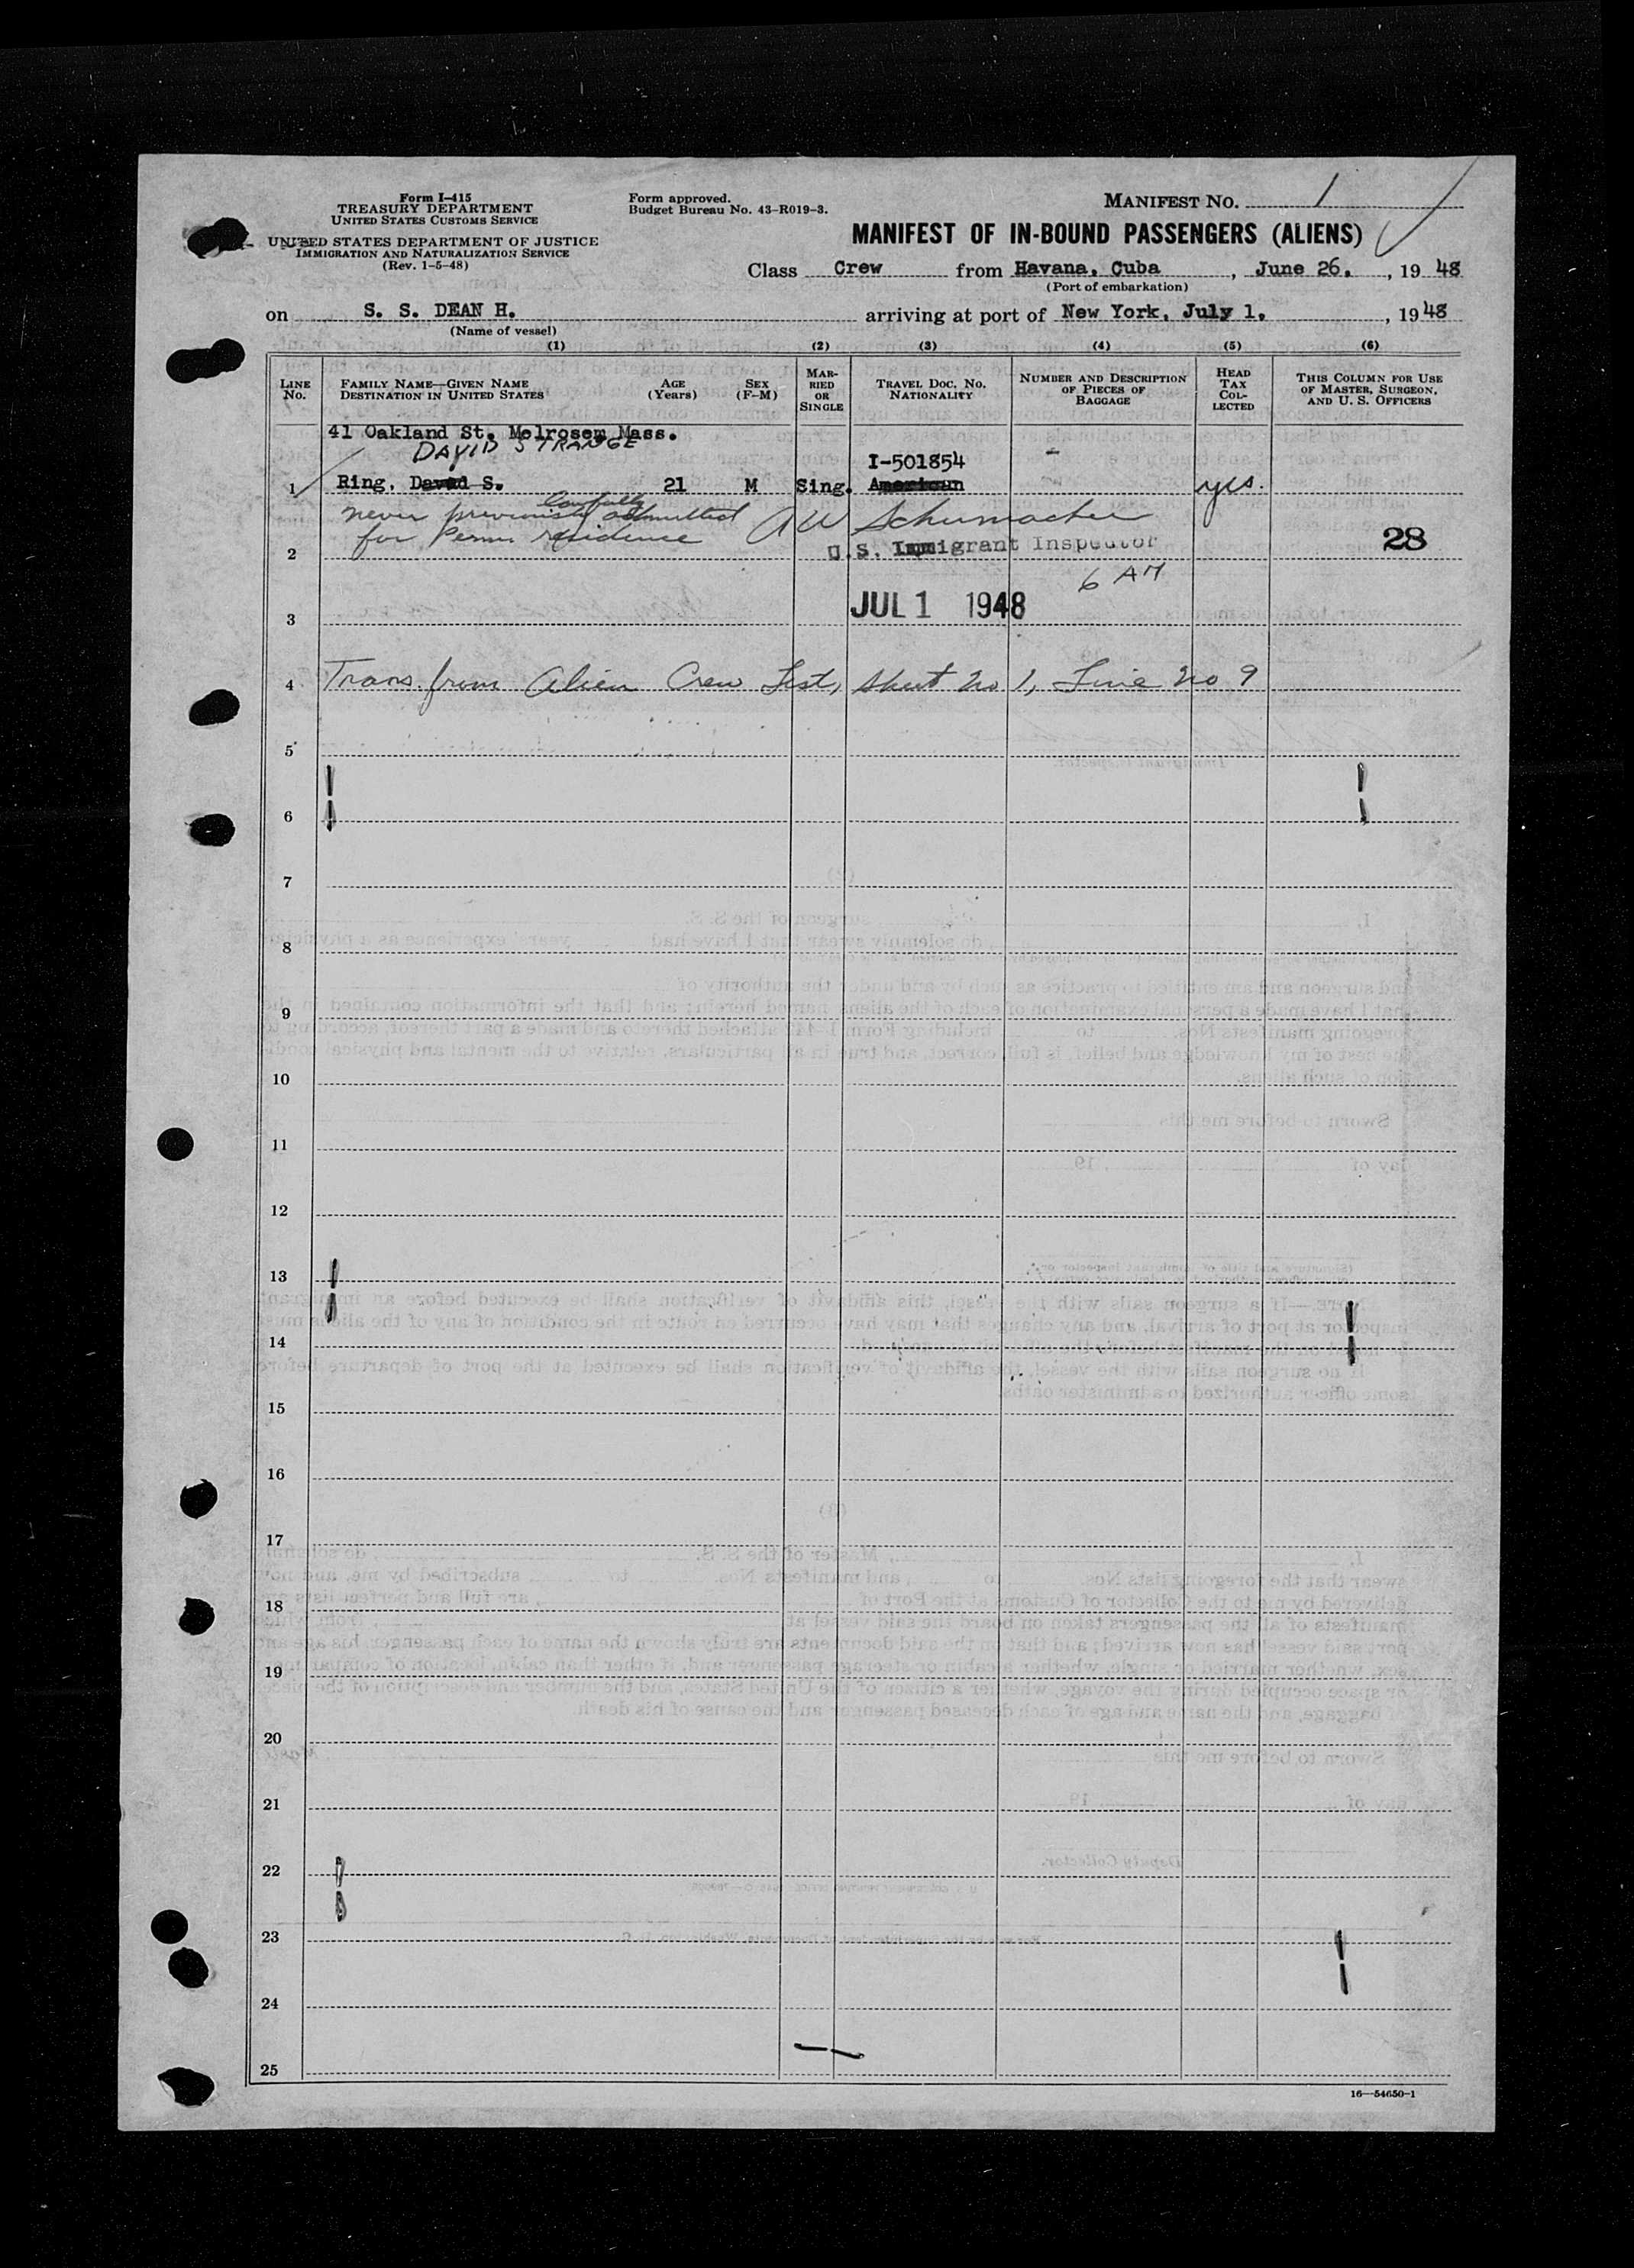 Form I-415
TREASURY DEPARTMENT
UNITED STATES CUSTOMS SERVICE
UNITED STATES DEPARTMENT OF JUSTICE
IMMIGRATION AND NATURALIZATION SERVICE
(Rev. 1-5-48)
Form approved.
Budget Bureau No. 43-R019-3.
MANIFEST NO. 1
MANIFEST OF IN-BOUND PASSENGERS (ALIENS)
Class Crew from Havana, Cuba, June 26, 1948
(Port of embarkation)
on S. S. DEAN H. arriving at port of New York, July 1, 1948
(Name of vessel)
(1) (2) (3) (4) (5) (6)
LINE No. FAMILY NAME—GIVEN NAME DESTINATION IN UNITED STATES AGE (Years) SEX (F-M) MARRIED OR SINGLE TRAVEL DOC. NO. NATIONALITY NUMBER AND DESCRIPTION OF PIECES OF BAGGAGE HEAD TAX COLLECTED THIS COLUMN FOR USE OF MASTER, SURGEON, AND U. S. OFFICERS
41 Oakland St. Melrosem Mass.
DAVID STRANGE
I-501854 -
1 Ring, David S. 21 M Sing. American yes.
never previously lawfully admitted A W Schumacher
for Perm residence
2 U.S. Immigrant Inspector 28
6 AM
3 JUL 1 1948
4 Trans. from Alien Crew List, Sheet No 1, Line No 9
5
6
7
8
9
10
11
12
13
14
15
16
17
18
19
20
21
22
23
24
25
16—54650-1